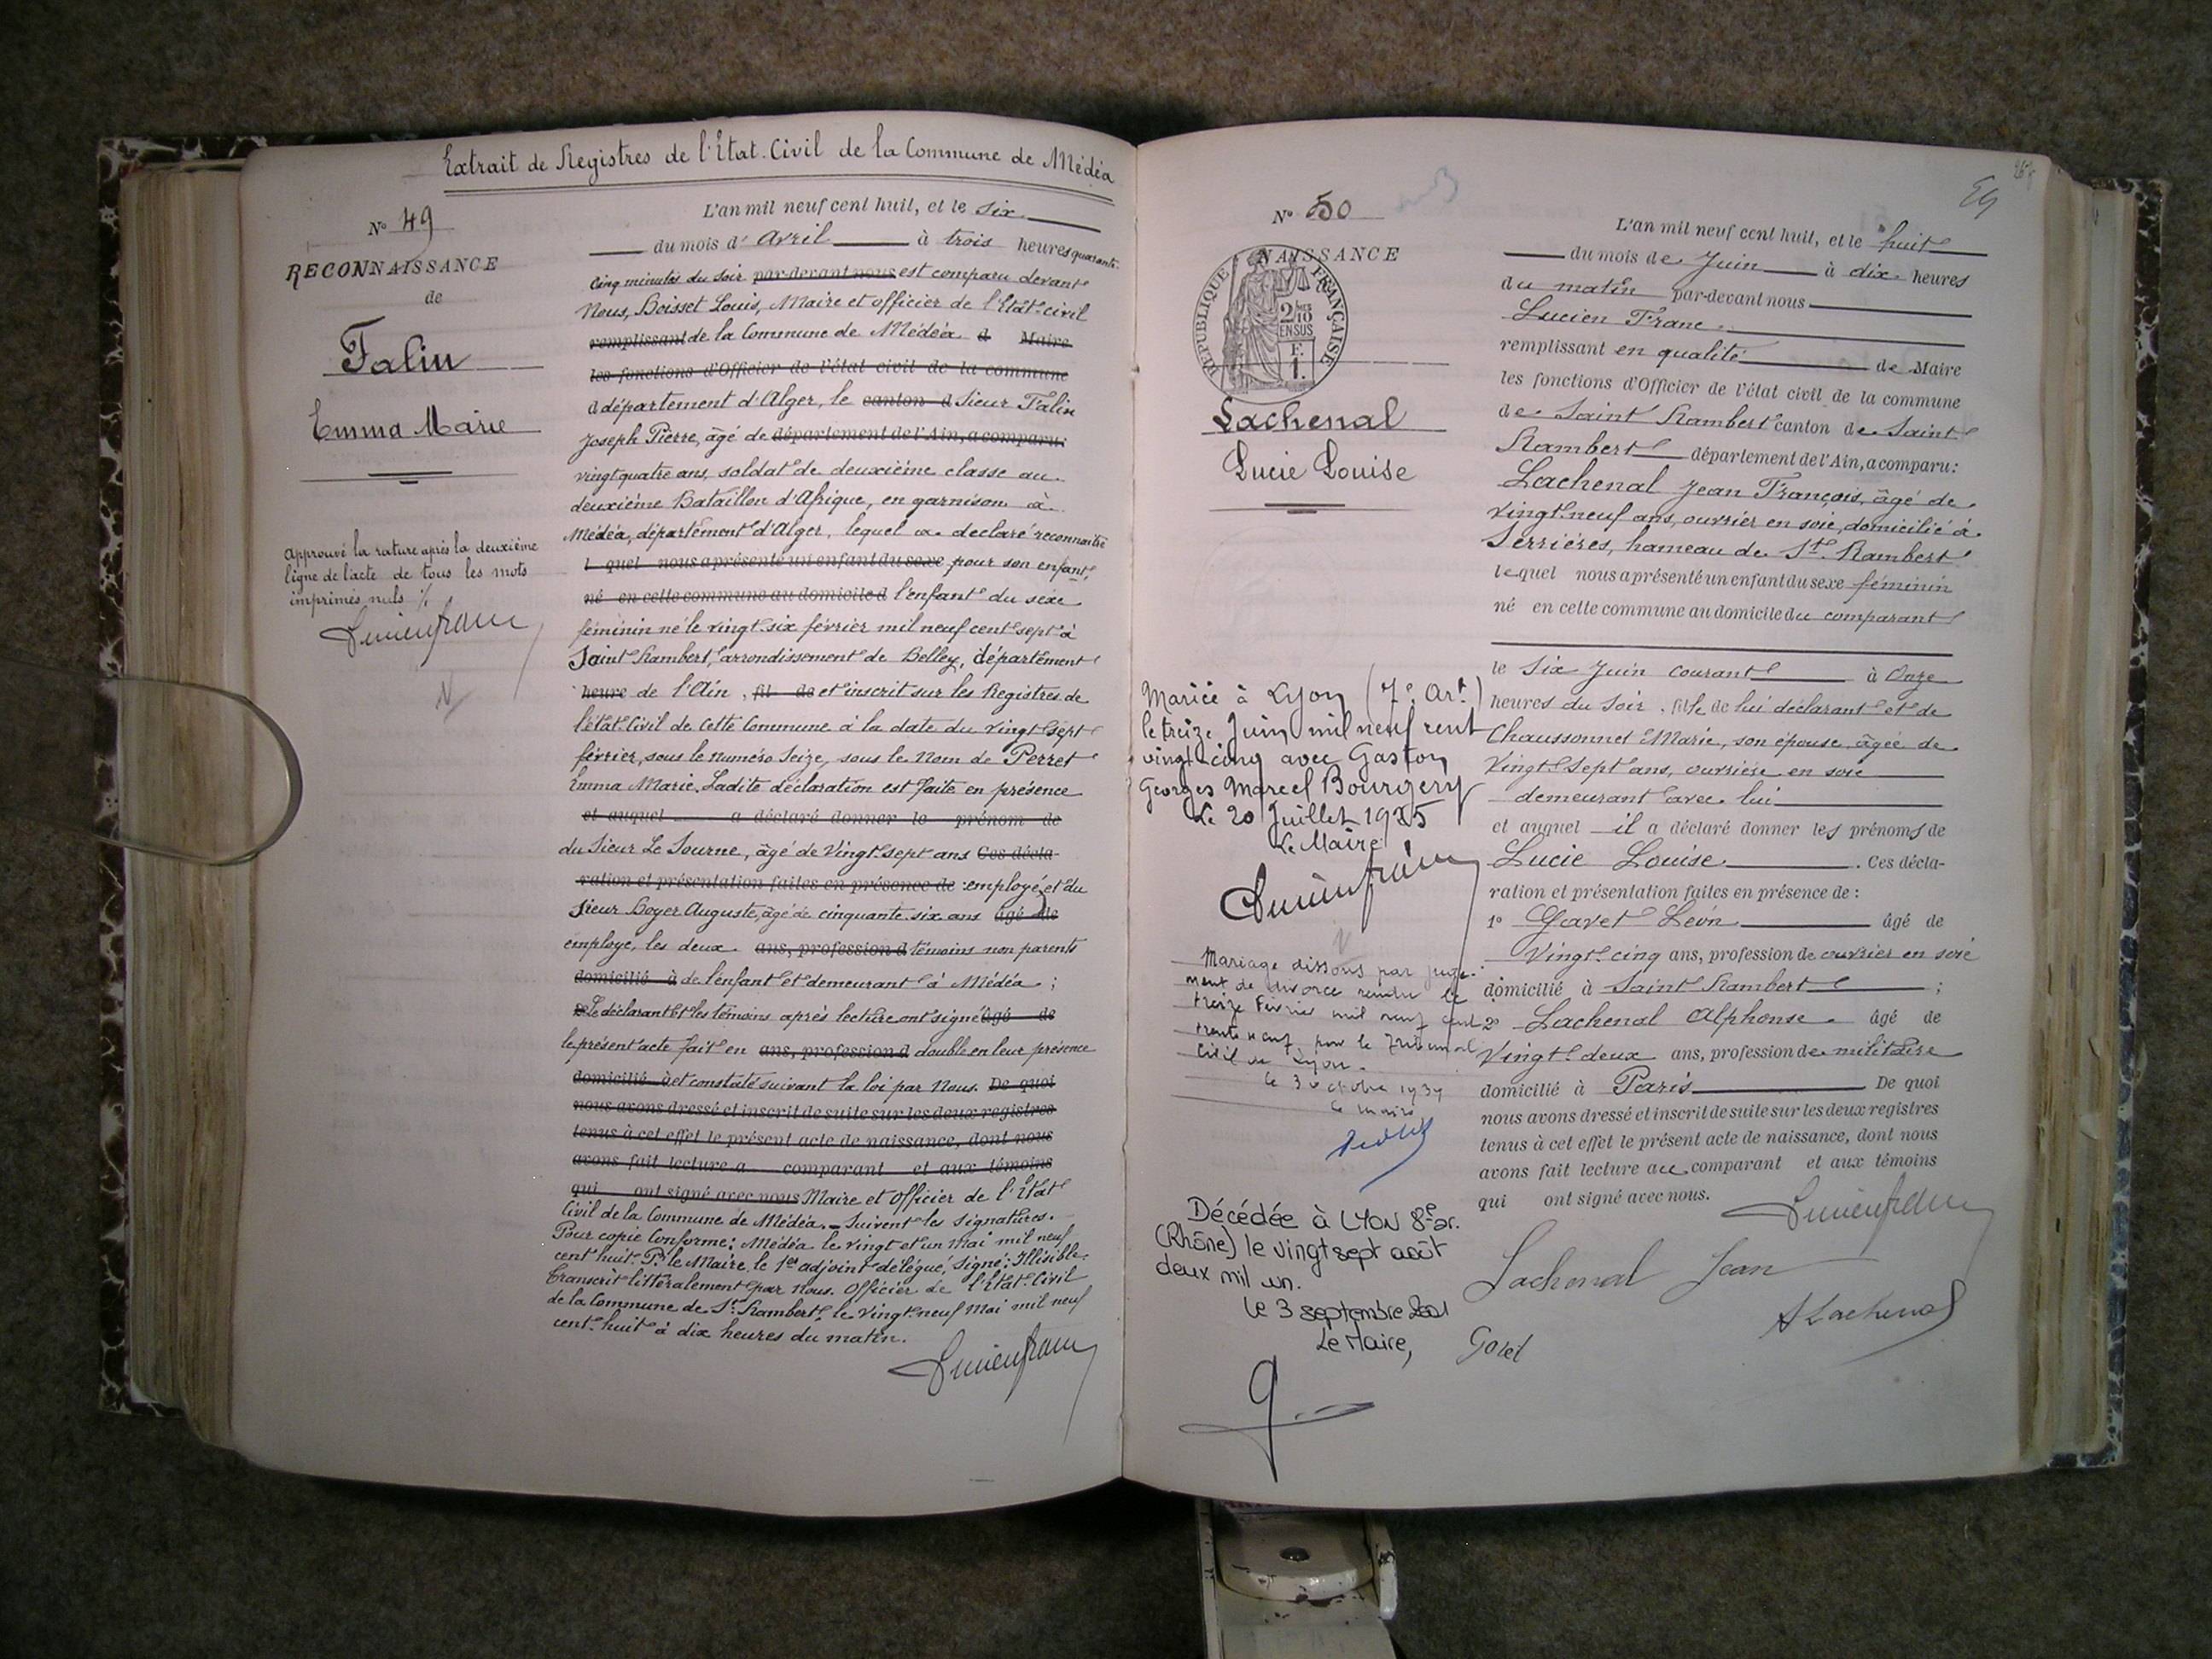 Extrait de Registres de l'Etat-Civil de la Commune de Médéa
No 49
RECONNAISSANCE
de
Falin
Emma Marie
Approuvé la rature après la deuxième
ligne de l'acte de tous les mots
imprimés nuls
L'an mil neuf cent huit, et le six
du mois d'Avril à trois heures quarante
cinq minutes du soir par-devant nous est comparu devant
Nous, Boisset Louis, Maire et officier de l'Etat-civil
remplissant de la Commune de Médéa d Maire
les fonctions d'Officier de l'état civil de la commune
d département d'Alger, le canton d Sieur Falin
Joseph Pierre, âgé de département de l'Ain, a comparu:
vingt quatre ans, soldat de deuxième classe au
deuxième Bataillon d'Afrique, en garnison à
Médéa, département d'Alger, lequel a déclaré reconnaître
l quel nous a présenté un enfant du sexe pour son enfant,
né en cette commune au domicile d l'enfant du sexe
féminin né le vingt-six février mil neuf cent sept à
Saint Rambert, arrondissement de Belley, département
heure de l'Ain, fil de et inscrit sur les Registres de
l'état-Civil de cette Commune à la date du vingt-sept
février, sous le numéro Seize, sous le Nom de Perret
Emma Marie. Ladite déclaration est faite en présence
et auquel a déclaré donner le prénom de
du Sieur Le Sourne, âgé de vingt-sept ans Ces décla-
ration et présentation faites en présence de : employé, et du
Sieur Boyer Auguste, âgé de cinquante-six ans âgé de
employé, les deux ans, profession d témoins non parents
domicilié à de l'enfant et demeurant à Médéa ;
Le déclarant et les témoins après lecture ont signé âgé de
le présent acte fait en ans, profession d double en leur présence
domicilié à et constaté suivant la loi par Nous. De quoi
nous avons dressé et inscrit de suite sur les deux registres
tenus à cet effet le présent acte de naissance, dont nous
avons fait lecture a comparant et aux témoins
qui ont signé avec nous Maire et officier de l'Etat
Civil de la Commune de Médéa. - Suivent les signatures.
Pour copie Conforme: Médéa le vingt et un Mai mil neuf
cent huit. Pr le Maire, le 1er adjoint délégué, signé: Illisible.
Transcrit littéralement par Nous. Officier de l'Etat-Civil
de la Commune de St Rambert, le Vingt-neuf Mai mil neuf
cent huit à dix heures du matin.
Lucien Franc
No 50
NAISSANCE
RÉPUBLIQUE FRANÇAISE
2/10
EN SUS
F.
1.
Lachenal
Lucie Louise
Mariée à Lyon (7e Art)
le treize Juin mil neuf cent
vingt cinq avec Gaston
Georges Marcel Bourgery
Le 20 Juillet 1925
Le Maire
Lucien Franc
Mariage dissous par juge-
ment de divorce rendu le
treize Février mil neuf cent
trente neuf par le Tribunal
Civil de Lyon.
le 3 octobre 1939
le maire
Décédée à LYON 8e ar.
(Rhône) le vingt sept août
deux mil un.
Le 3 septembre 2001
Le Maire,
59
L'an mil neuf cent huit, et le huit
du mois de Juin à dix heures
du matin par-devant nous
Lucien Franc
remplissant en qualité de Maire
les fonctions d'Officier de l'état civil de la commune
de Saint Rambert canton de Saint
Rambert département de l'Ain, a comparu:
Lachenal Jean François, âgé de
vingt-neuf ans, ouvrier en soie, domicilié à
Serrières, hameau de St Rambert
lequel nous a présenté un enfant du sexe féminin
né en cette commune au domicile du comparant
le six Juin courant à Onze
heures du soir, fille de lui déclarant et de
Chaussonnet Marie, son épouse, âgée de
Vingt-Sept ans, ouvrière en soie
demeurant avec lui
et auquel il a déclaré donner les prénoms de
Lucie Louise. Ces décla-
ration et présentation faites en présence de :
1o Gavet Léon âgé de
Vingt-cinq ans, profession de ouvrier en soie
domicilié à Saint Rambert ;
2o Lachenal Alphonse âgé de
Vingt-deux ans, profession de militaire
domicilié à Paris De quoi
nous avons dressé et inscrit de suite sur les deux registres
tenus à cet effet le présent acte de naissance, dont nous
avons fait lecture au comparant et aux témoins
qui ont signé avec nous.
Lucien Franc
Lachenal Jean
A Lachenal